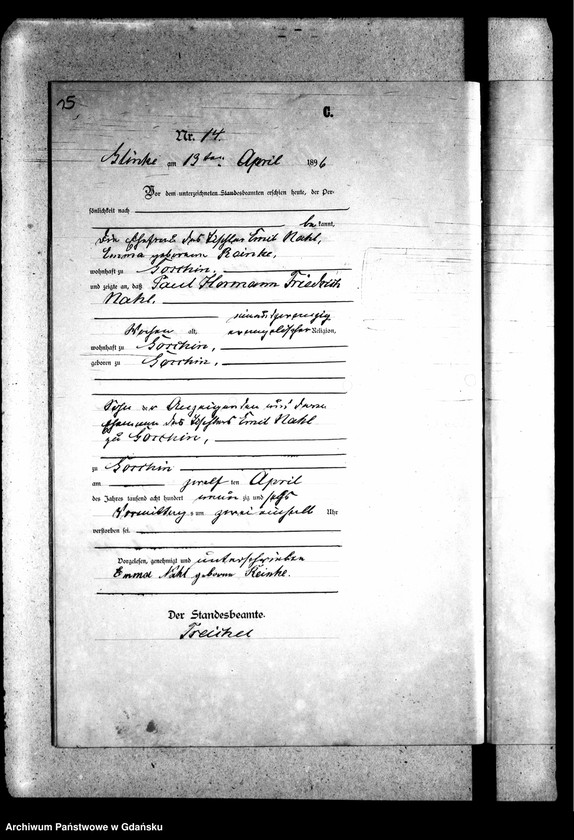 15
C.
Nr. 14.
Glinke am 13ten April 1896
Vor dem unterzeichneten Standesbeamten erschien heute, der Per-
sönlichkeit nach
bekannt,
die Ehefrau des Tischler Emil Nahl,
Emma geborene Reinke,
wohnhaft zu Gorchin,
und zeigte an, daß Paul Hermann Friedrich
Nahl.
Wochen alt, evangelischer Religion,
wohnhaft zu Gorchin,
geboren zu Gorchin,
Sohn der Anzeigenden und deren
Ehemann des Tischlers Emil Nahl
zu Gorchin,
zu Gorchin
am zwölften April
des Jahres tausend acht hundert neunzig und sechs
Vormittags um zwei einhalb Uhr
verstorben sei.
Vorgelesen, genehmigt und unterschrieben
Emma Nahl geborene Reinke.
Der Standesbeamte.
Treichel
Archiwum Państwowe w Gdańsku